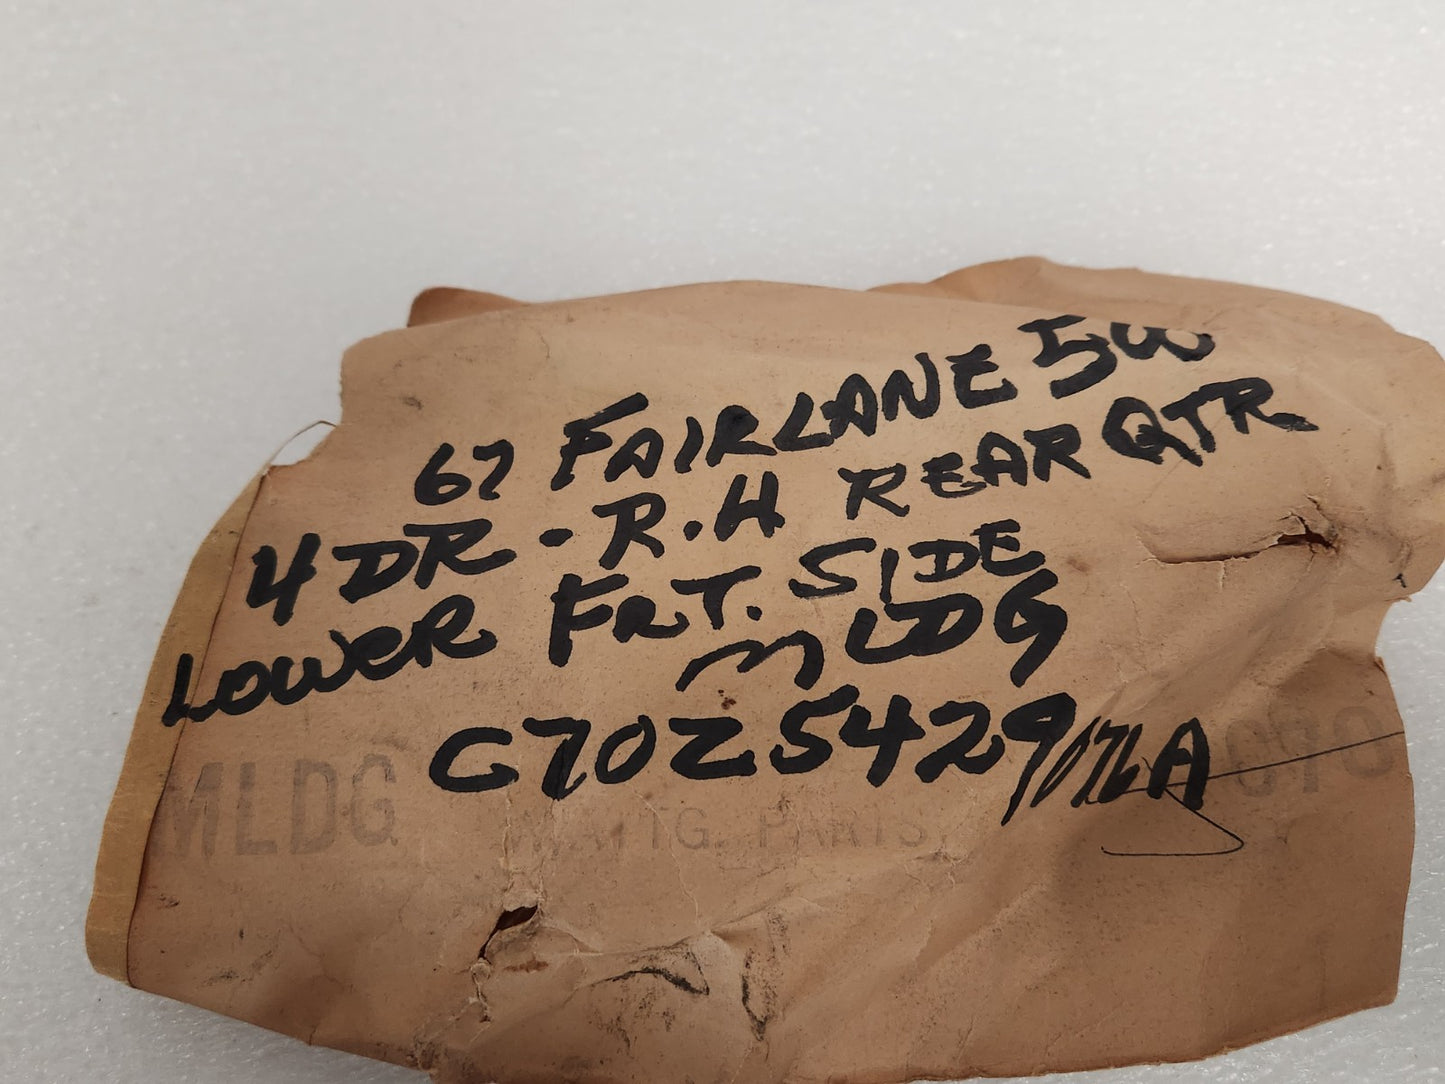 67 FAIRLANE 500
4 DR - R.H REAR QTR
LOWER FRT. SIDE
MLDG
C7OZ5429076A
MLDG
PARTS